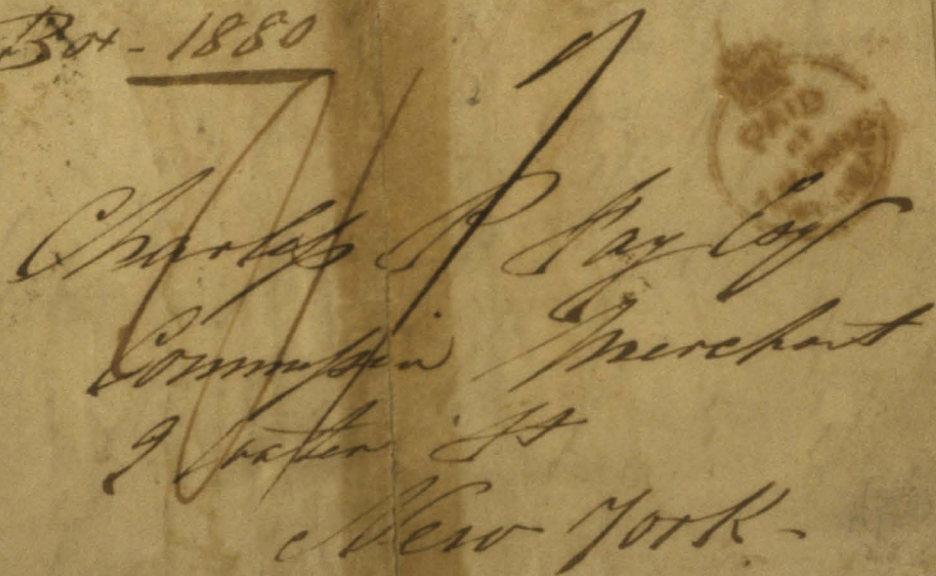 Box - 1880
PAID
Charles P Fay Esq
Commission Merchant
9 Water St
New York